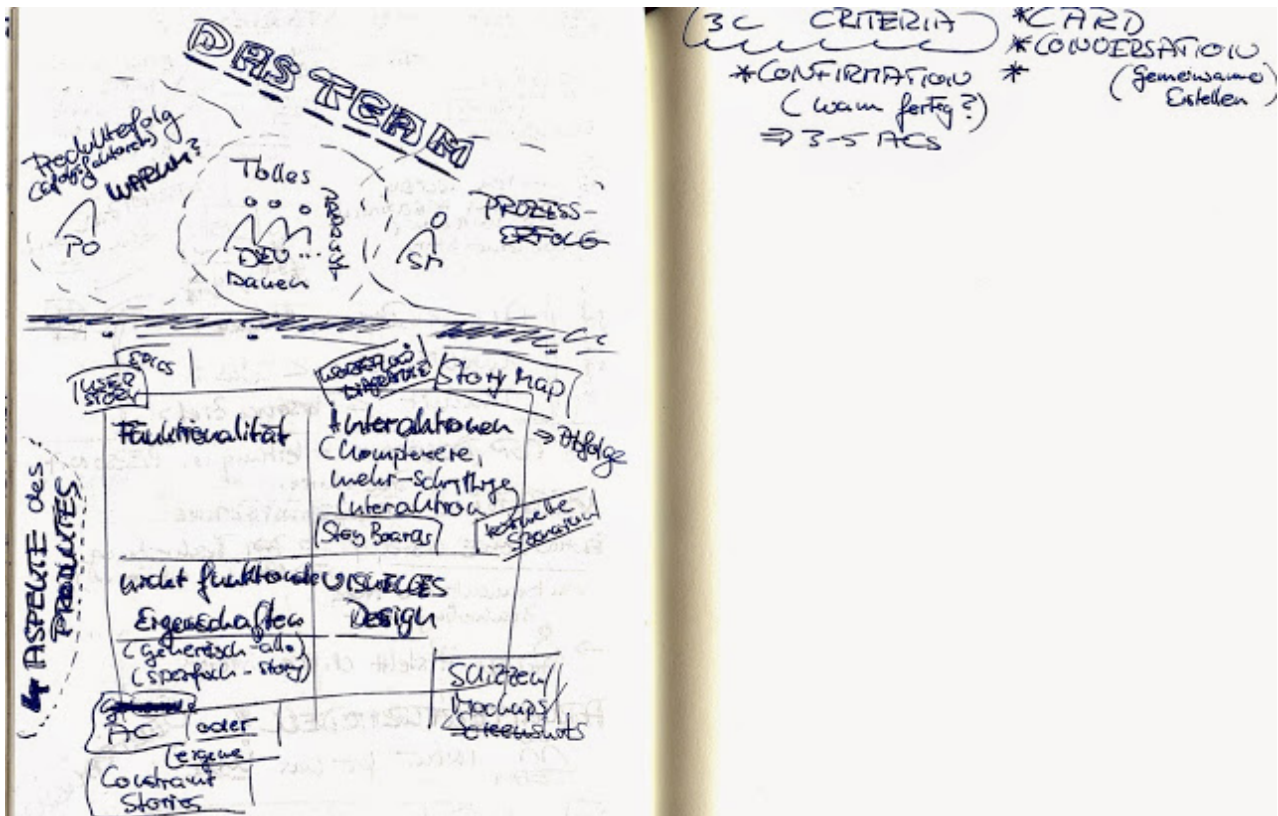 DAS TEAM
Produkterfolg
(Erfolgsfaktoren)
WARUM?
PO
Tolles
PRODUKT
DEV...
Bauen
SM
PROZESS-
ERFOLG
EPICS
USER
STORY
WORKFLOW
DIAGRAMME
Story Map
Funktionalität
Interaktionen
(Komplexere,
mehr-schrittige
Interaktion
=> Abfolge
Story Boards
Szenarien
nicht funktionale
Eigenschaften
(generisch - alle)
(spezifisch - story)
VISUELLES
Design
Skizzen/
Mockups/
Screenshots
ASPEKTE des
PRODUKTES
AC
oder
eigene
Constraint
Stories
3C CRITERIA
*CARD
*CONVERSATION
(Gemeinsames
Erstellen)
*
*CONFIRMATION
(wann fertig?)
=> 3-5 ACs